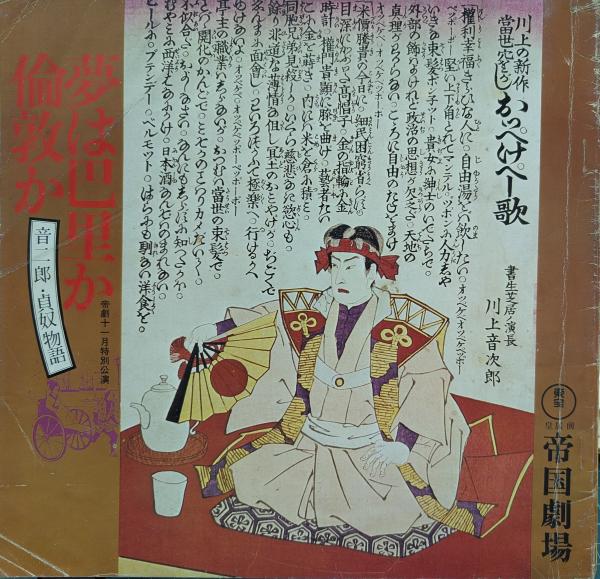 川上の新作
當世流行 おッぺけぺー歌
權利幸福きらひな人に。自由湯をば飲したい。オッペケペ。オッペケペッポー
ペッポーポー堅い上下角とれてマンテルヅボンに人力車
いきな束髪ボンネット。貴女に紳士のいでたちで。
外部の飾はよけれど政治の思想が欠乏だ。天地の
真理がわからない。こころに自由のたねをまけ
オッペケペ。オッペケペッポペッポーポー
米價騰貴の今日に。細民困窮省らず。
目深にかぶつた高帽子。金の指輪に金
時計。權門貴顯に膝を曲げ。藝者たい
こに金を蒔き。内には米を倉に積み。
同胞兄弟見殺しか。いくら慈悲なき慾心も。
餘り非道な薄情な但し冥土のおみやげか。ぢごくで
ゑんまに面會し。わいろつかふて極樂へ。行けるかへ
ゆけないよ。オッペケペオッペケペッポーペッポーポー
亭主の職業はしらないが。おつむは當世の束髪で。
ことばは開化のかんごで。みそかのことわりカメだいて。
不似合だ。およしなさい。なんにもしらずに知つたかほ。
むやみに西洋をはなにかけ。日本酒なんぞはのまれない。
ビールに。ブランデー。ベルモット。はらにも馴ない洋食を。
書生芝居ノ演長
川上音次郎
東宝
皇居前
帝国劇場
夢は巴里か
倫敦か
音二郎・貞奴物語
帝劇十一月特別公演